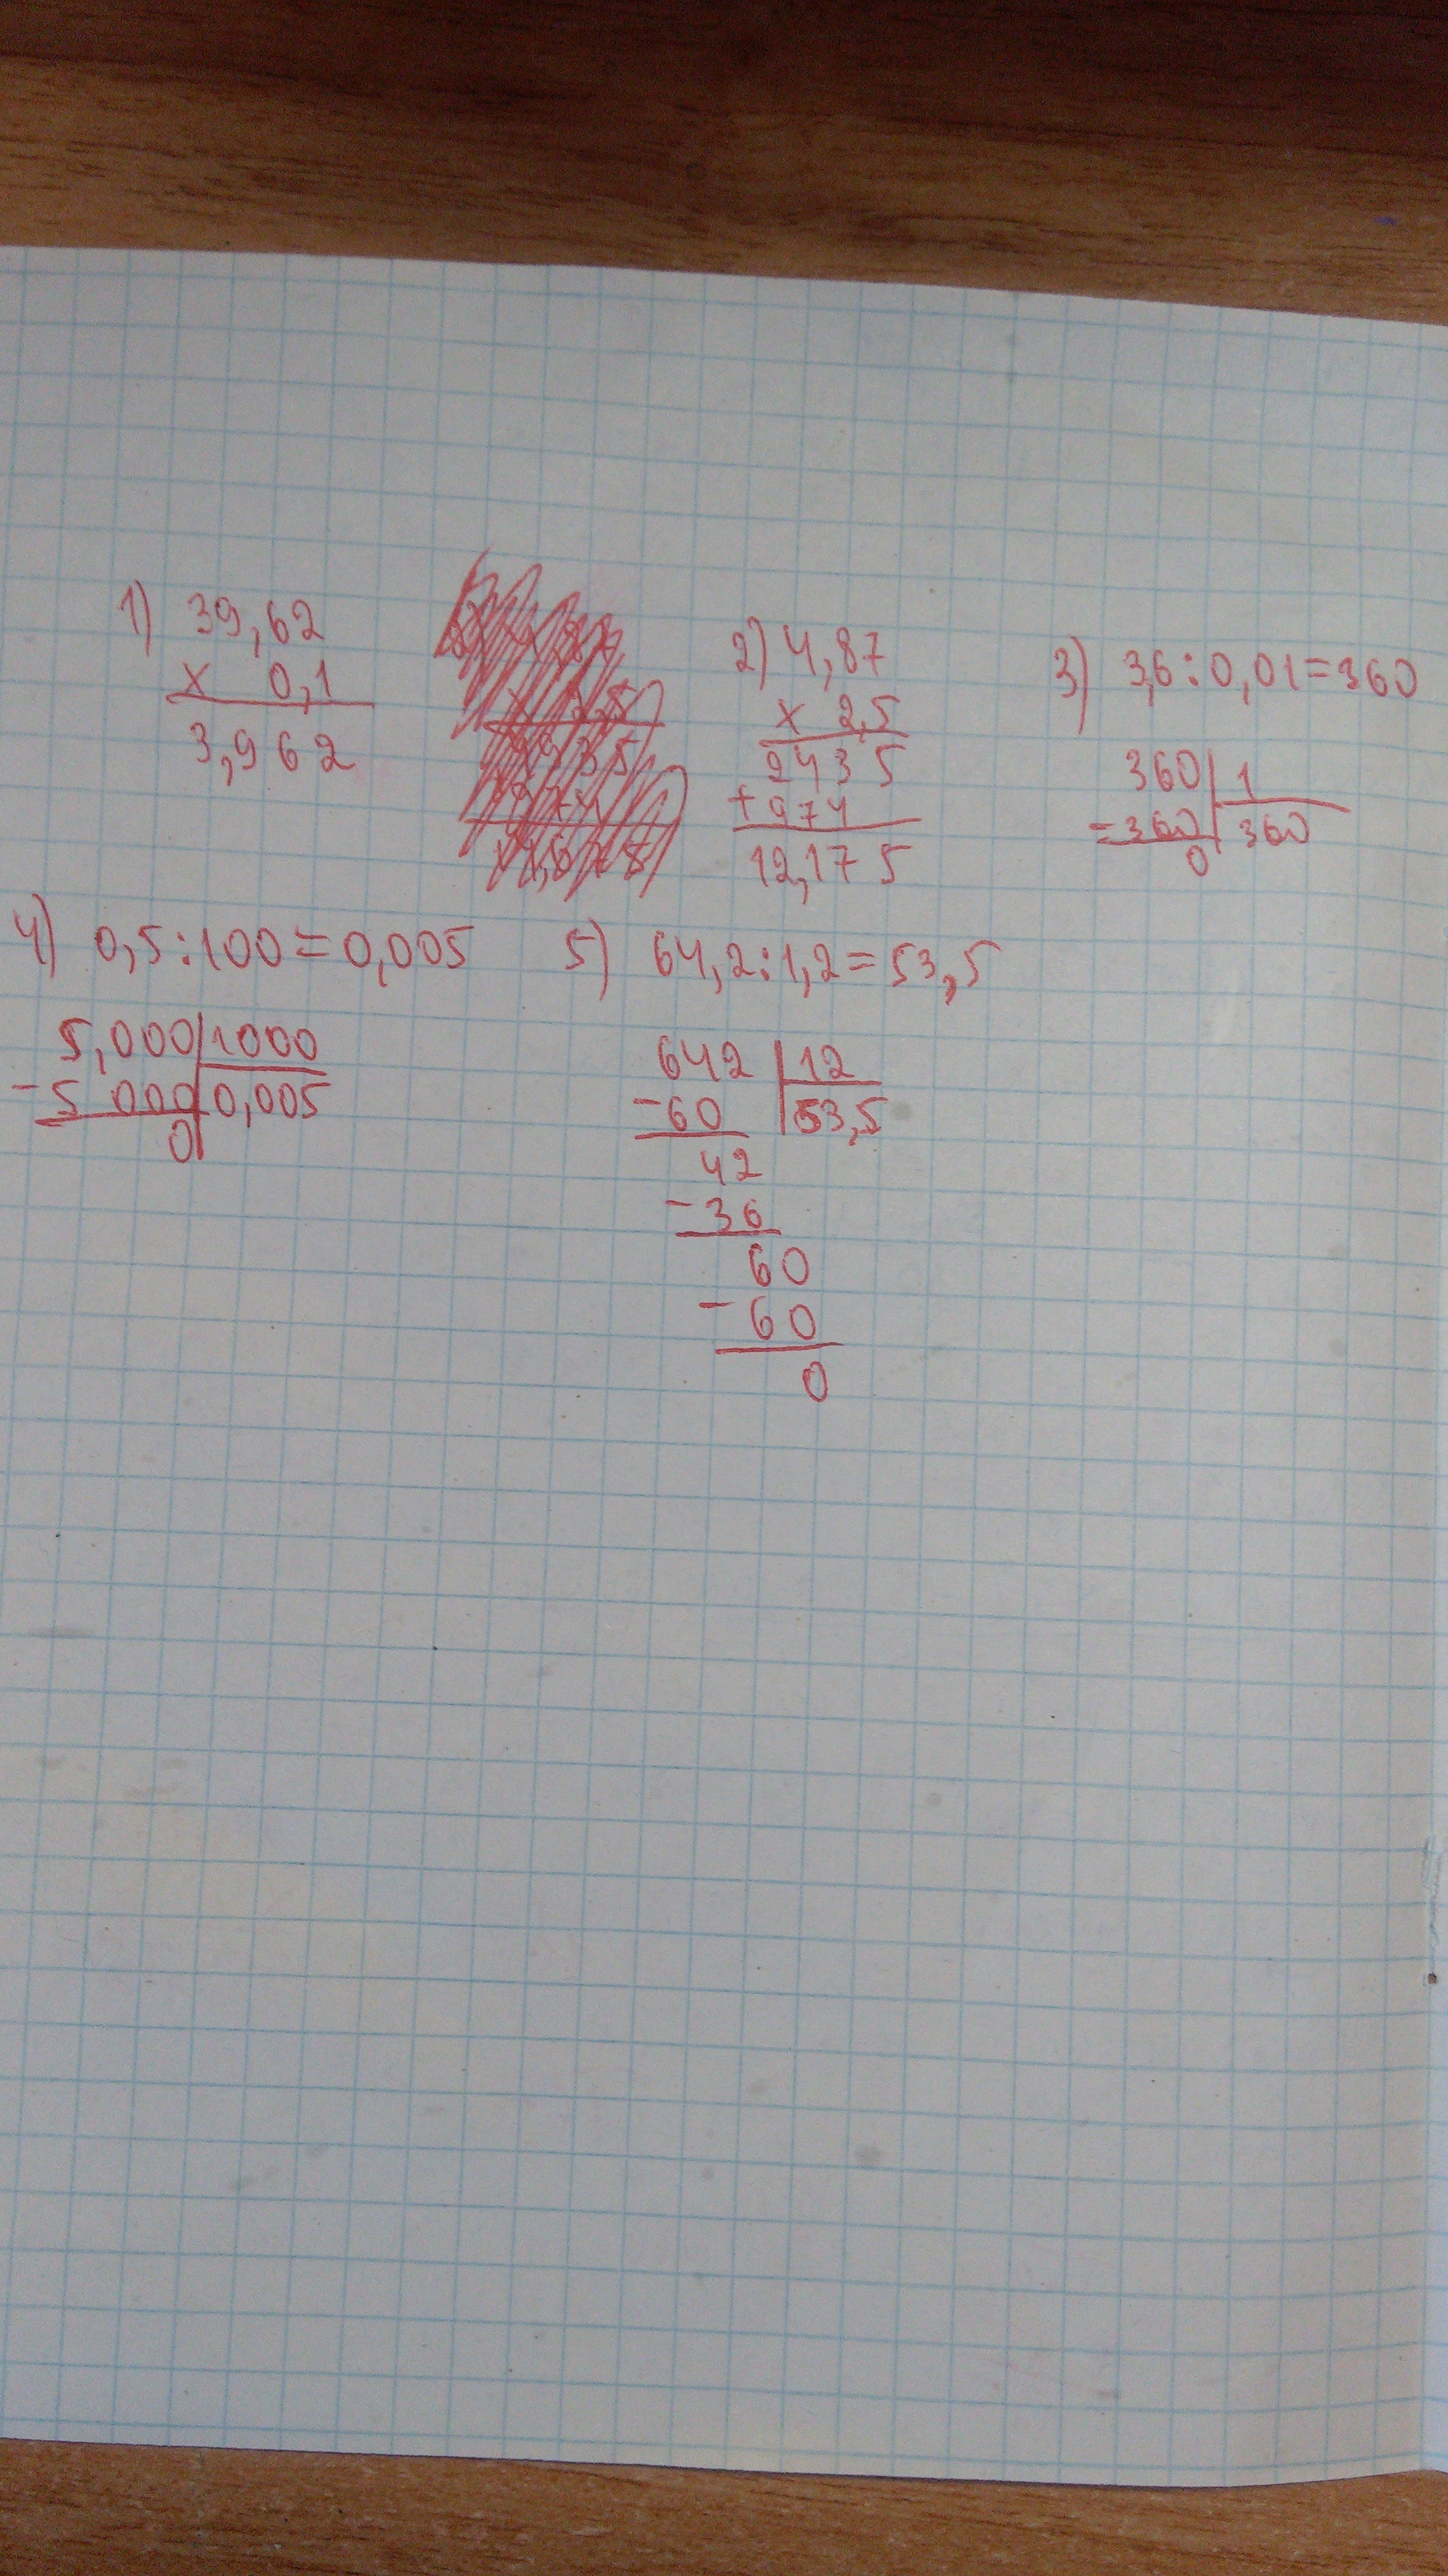 1) 39,62
x 0,1
3,962
2) 4,87
x 2,5
2435
+974
12,175
3) 3,6:0,01=360
360 1
-360 360
0
4) 0,5:100=0,005
5,000 1000
-5 000 0,005
0
5) 64,2:1,2=53,5
642 12
-60 53,5
42
-36
60
-60
0